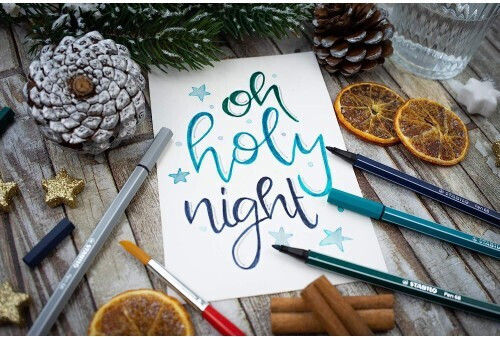 oh
holy
night
STABILO
STABILO
STABILO Pen 68